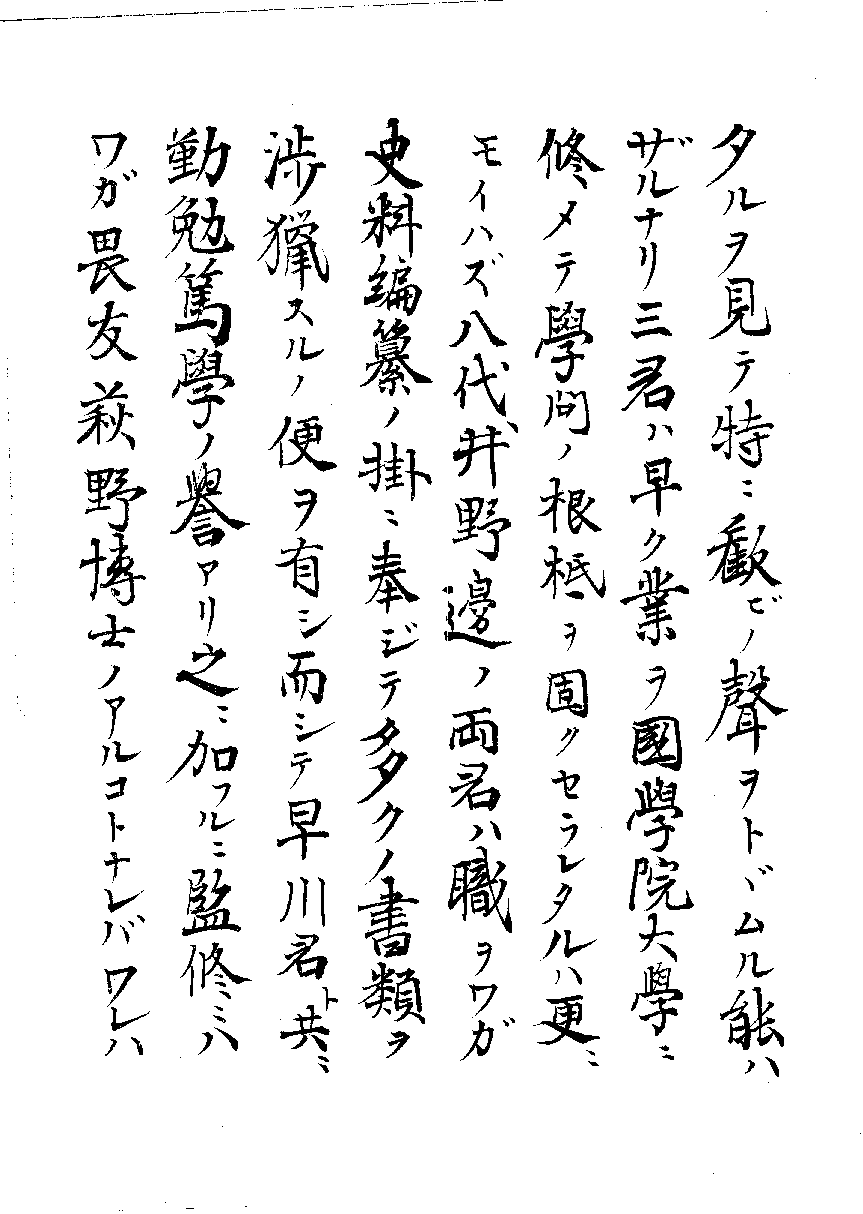 タルヲ見テ特ニ歡ビノ聲ヲトヾムル能ハ
ザルナリ三君ハ早ク業ヲ國學院大學ニ
修メテ學問ノ根柢ヲ固クセラレタルハ更ニ
モイハズ八代、井野邊ノ両君ハ職ヲワガ
史料編纂ノ掛ニ奉ジテ多クノ書類ヲ
渉獵スルノ便ヲ有シ而シテ早川君ト共ニ
勤勉篤學ノ譽アリ之ニ加フルニ監修ニハ
ワガ畏友萩野博士ノアルコトナレバワレハ